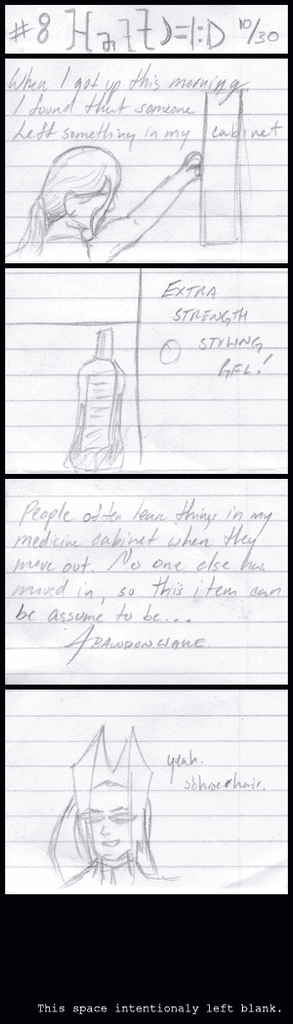 #8
10/30
When I got up this morning
I found that someone
Left something in my cabinet
EXTRA
STRENGTH
STYLING
GEL!
People often leave things in my
medicine cabinet when they
move out. No one else has
moved in, so this item can
be assume to be...
ABANDONWARE
yeah.
hair.
This space intentionaly left blank.